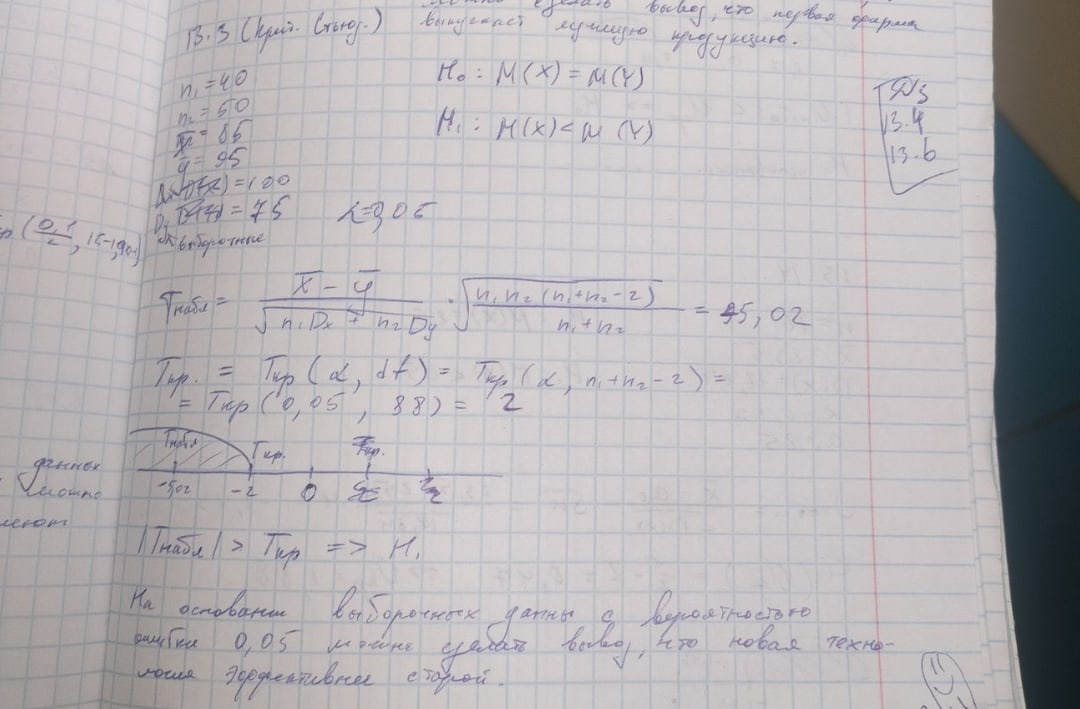 можно сделать вывод, что первая фирма
выпускает лучшую продукцию.
13.3 (Крит. Стьюд.)
n₁ = 40
n₂ = 50
x̄ = 85
ȳ = 95
Dx = 100
Dy = 75 α = 0,05
выборочные
H₀ : M(X) = M(Y)
H₁ : M(X) < M(Y)
ДЗ
13.4
13.6
(0,1/2, 15-1, 90-1)
Tнабл = (x̄ − ȳ)/√(n₁Dx + n₂Dy) · √(n₁n₂(n₁+n₂−2)/(n₁+n₂)) = −5,02
Tкр. = Tкр(α, df) = Tкр(α, n₁+n₂−2) =
= Tкр(0,05, 88) = 2
Tнабл Tкр. Tкр.
−5,02 −2 0
данных
можно
|Tнабл| > Tкр => H₁
На основании выборочных данны с вероятностью
ошибки 0,05 можно сделать вывод, что новая техно-
логия эффективнее старой.